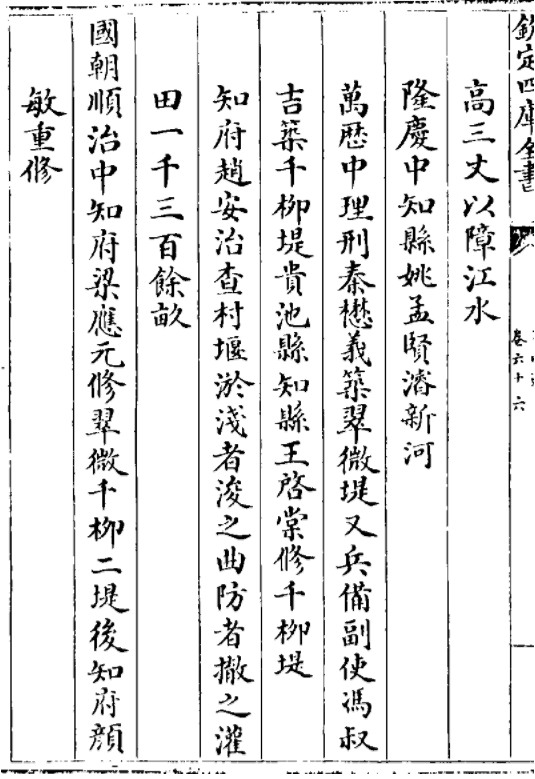 欽定四庫全書
卷六十六
高三丈以障江水
隆慶中知縣姚孟賢濬新河
萬歷中理刑秦懋義築翠微堤又兵備副使馮叔
吉築千柳堤貴池縣知縣王啓棠修千柳堤
知府趙安治查村堰淤淺者浚之曲防者撤之灌
田一千三百餘畝
國朝順治中知府梁應元修翠微千柳二堤後知府顔
敏重修